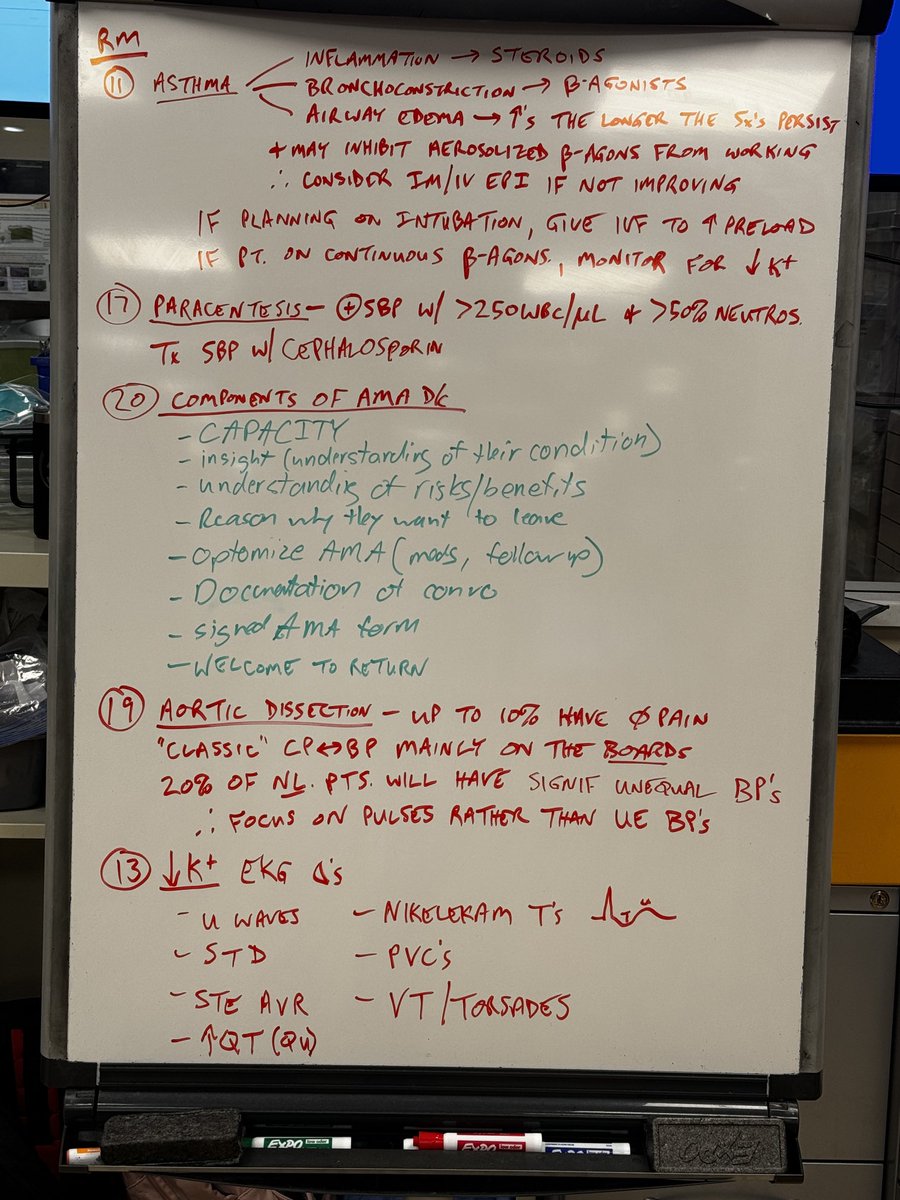 RM
⑪ ASTHMA
INFLAMMATION → STEROIDS
BRONCHOCONSTRICTION → β-AGONISTS
AIRWAY EDEMA → ↑'s THE LONGER THE Sx's PERSIST
+ MAY INHIBIT AEROSOLIZED β-AGONS FROM WORKING
∴ CONSIDER IM/IV EPI IF NOT IMPROVING
IF PLANNING ON INTUBATION, GIVE IVF TO ↑ PRELOAD
IF PT. ON CONTINUOUS β-AGONS., MONITOR FOR ↓ K+
⑰ PARACENTESIS – ⊕SBP W/ >250WBC/µL + >50% NEUTROS.
Tx SBP W/ CEPHALOSPORIN
⑳ COMPONENTS OF AMA D/C
- CAPACITY
- insight (understanding of their condition)
- understanding of risks/benefits
- Reason why they want to leave
- Optomize AMA (meds, follow up)
- Documentation of convo
- signed AMA form
- WELCOME TO RETURN
⑲ AORTIC DISSECTION – UP TO 10% HAVE Ø PAIN
"CLASSIC" CP↔BP MAINLY ON THE BOARDS
20% OF NL. PTS. WILL HAVE SIGNIF UNEQUAL BP's
∴ FOCUS ON PULSES RATHER THAN UE BP's
⑬ ↓K+ EKG Δ's
- U WAVES - NIKELEKAM T's T U
- STD - PVC's
- STE AVR - VT/TORSADES
- ↑QT (QU)
EXPO EXPO